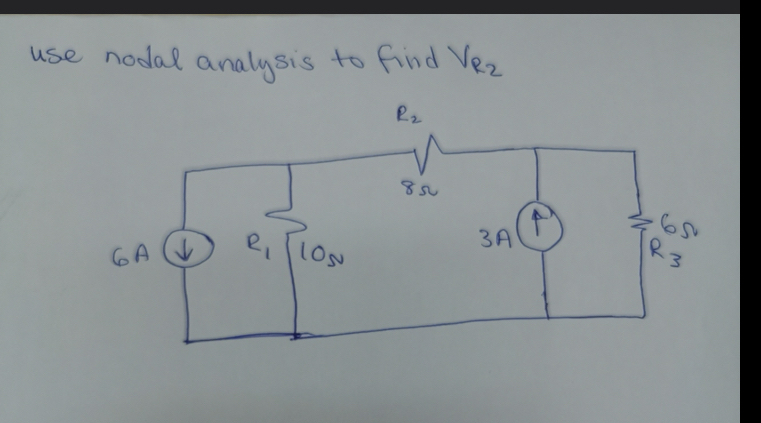 use nodal analysis to find VR2
R2
8Ω
6A
R1
10Ω
3A
6Ω
R3